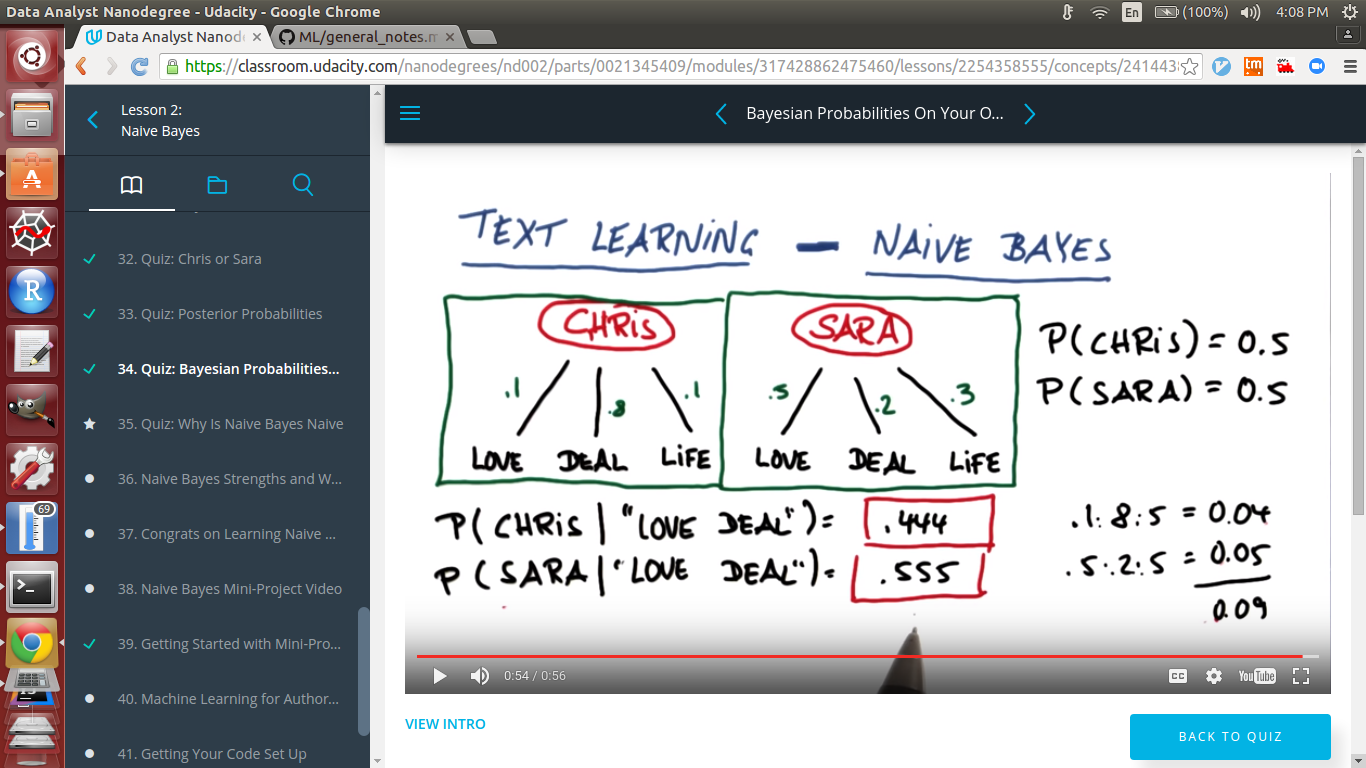 Data Analyst Nanodegree - Udacity - Google Chrome
En
(100%)
4:08 PM
Data Analyst Nanod
ML/general_notes.m
https://classroom.udacity.com/nanodegrees/nd002/parts/0021345409/modules/317428862475460/lessons/2254358555/concepts/241443
tm
Lesson 2:
Naive Bayes
Bayesian Probabilities On Your O...
32. Quiz: Chris or Sara
33. Quiz: Posterior Probabilities
34. Quiz: Bayesian Probabilities...
35. Quiz: Why Is Naive Bayes Naive
36. Naive Bayes Strengths and W...
37. Congrats on Learning Naive ...
38. Naive Bayes Mini-Project Video
39. Getting Started with Mini-Pro...
40. Machine Learning for Author...
41. Getting Your Code Set Up
R
69
TEXT LEARNING - NAiVE BAYES
CHRiS
SARA
P(CHRiS) = 0.5
P(SARA) = 0.5
.1 .8 .1
.5 .2 .3
LOVE DEAL LiFE
LOVE DEAL LiFE
P(CHRiS | "LOVE DEAL") = .444
P(SARA | "LOVE DEAL") = .555
.1.8.5 = 0.04
.5.2.5 = 0.05
0.09
0:54 / 0:56
CC
YouTube
VIEW INTRO
BACK TO QUIZ